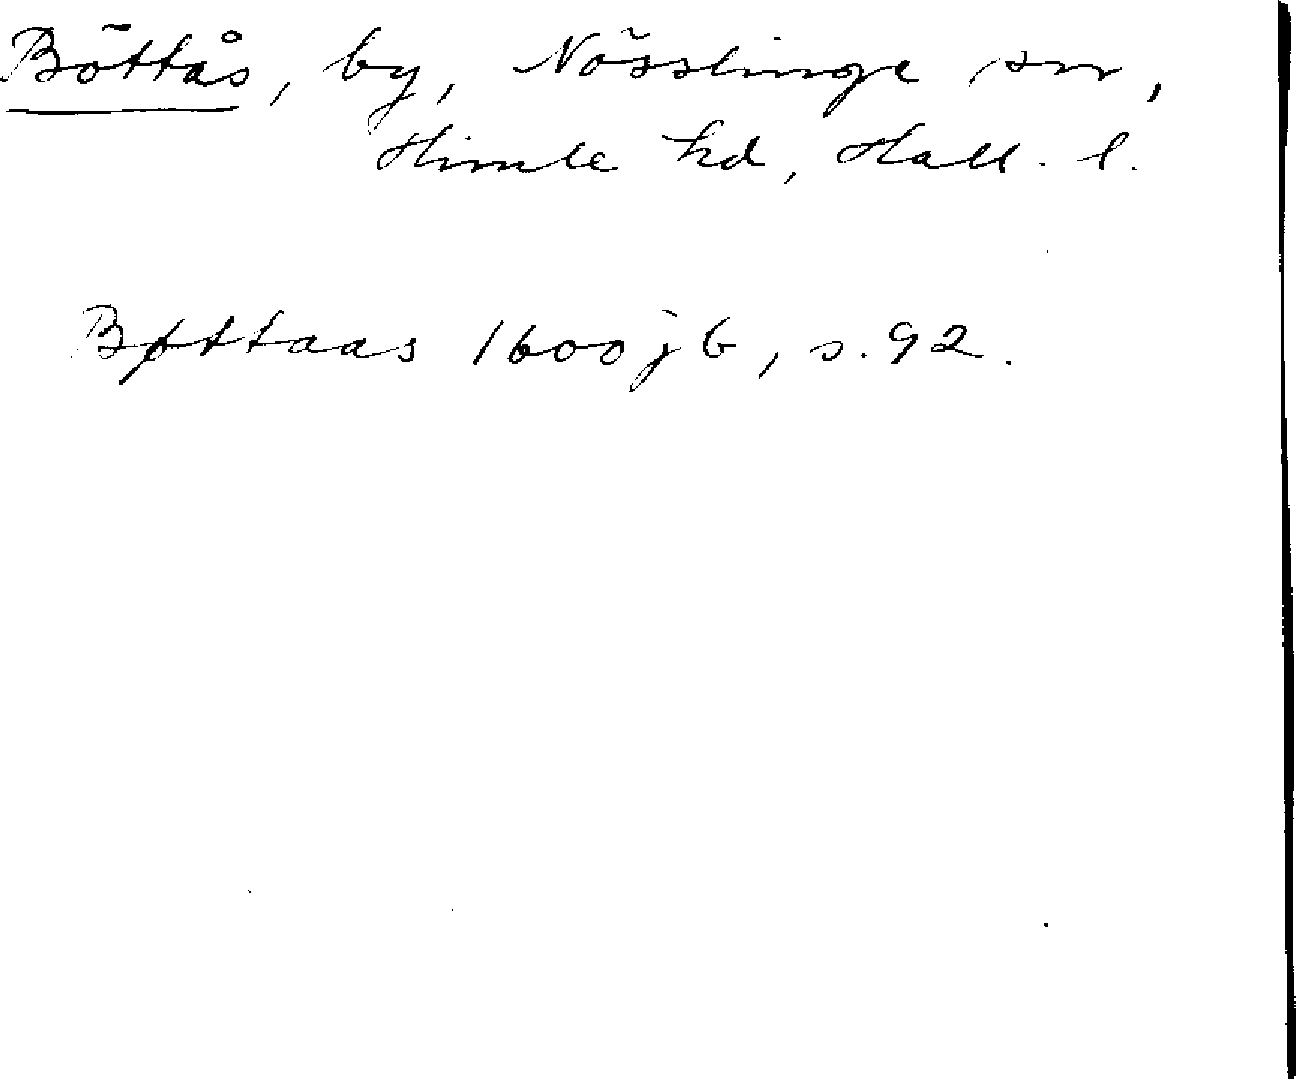 Böttås, by, Nösslinge sn,
Himle hd, Hall. l.
Bøttaas 1600 jb, s. 92.